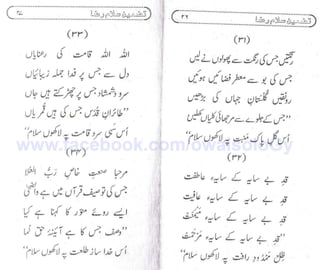 تضمین سلام رضا ۲۶
(۳۱)
رنگتیں جس کی رنگت سے پھولوں نے لیں
جس کی بو سے معطر فضائیں ہوئیں
رونقیں گلستانِ جہاں کی بڑھیں
"جس کے جلوے سے مرجھائی کلیاں کھلیں
اُس گلِ پاک منبت پہ لاکھوں سلام"
(۳۲)
قدِ بے سایہ کے سایۂ عاطفت
قدِ بے سایہ کے سایۂ عافیت
قدِ بے سایہ کے سایۂ میمنت
"قدِ بے سایہ کے سایۂ مرحمت
ظلِّ ممدودِ رافت پہ لاکھوں سلام"
تضمین سلام رضا ۲۷
(۳۳)
اللہ اللہ قامت کی رعنائیاں
دل سے جس پر فدا جملہ زیبائیاں
سرو و شمشاد جس پر چھڑکتے ہیں جاں
"طائرانِ قدس جس کی ہیں قمریاں
اُس سہی سرو قامت پہ لاکھوں سلام"
(۳۴)
مرحبا صنعتِ خاصِ ربُّ العُلا
جس کی توصیف قرآں میں ہے والضحیٰ
ایسے روئے منور کا کہنا ہے کیا
"وصف جس کا ہے آئینۂ حق نما
اُس خدا ساز طلعت پہ لاکھوں سلام"
www.facebook.com/owaisology